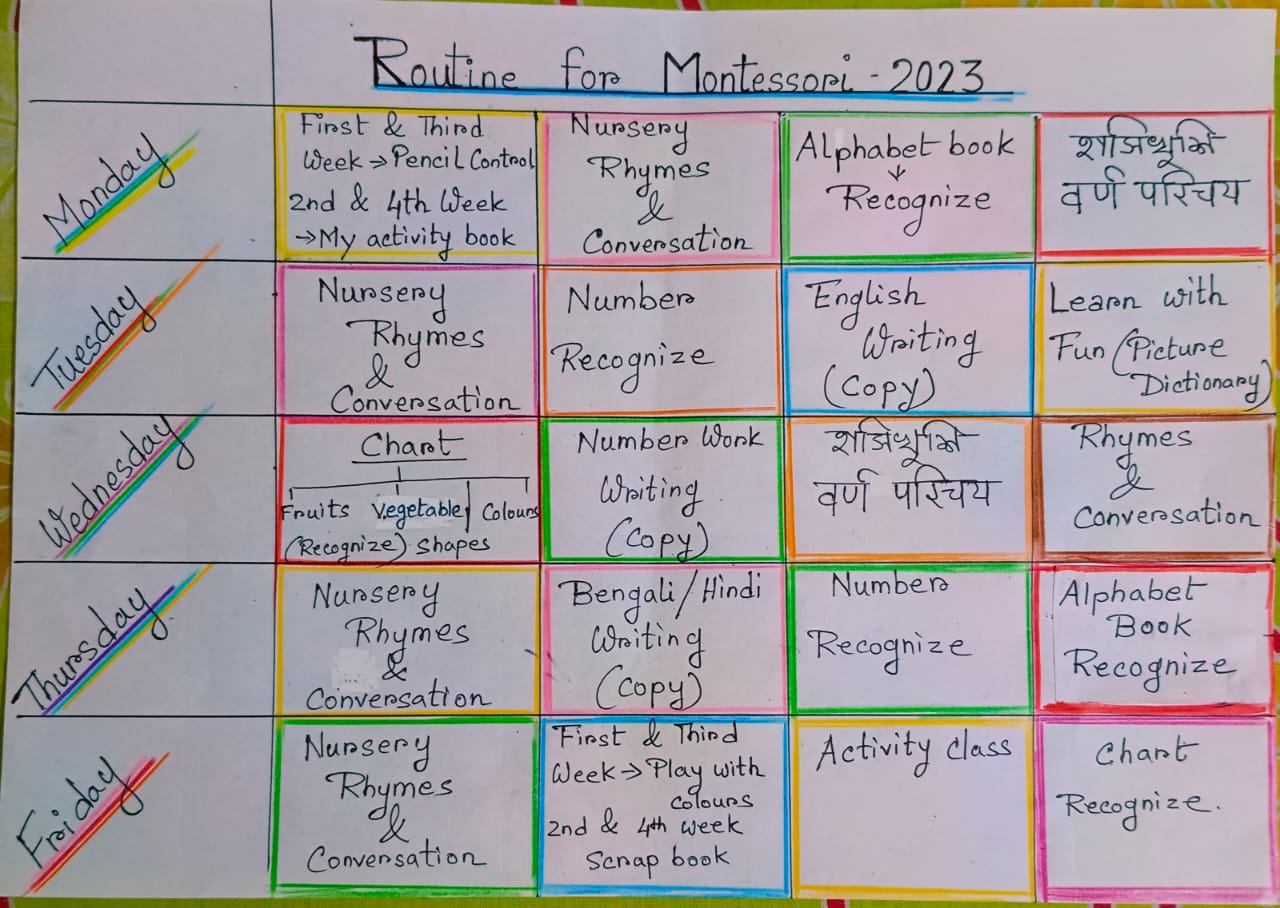 Routine for Montessori - 2023
Monday
First & Third
Week → Pencil Control
2nd & 4th Week
→ My activity book
Nursery
Rhymes
&
Conversation
Alphabet book
↓
Recognize
वर्ण परिचय
Tuesday
Nursery
Rhymes
&
Conversation
Number
Recognize
English
Writing
(Copy)
Learn with
Fun (Picture
Dictionary)
Wednesday
Chart
Fruits Vegetable Colours
(Recognize) Shapes
Number Work
Writing
(Copy)
वर्ण परिचय
Rhymes
&
Conversation
Thursday
Nursery
Rhymes
&
Conversation
Bengali/Hindi
Writing
(Copy)
Number
Recognize
Alphabet
Book
Recognize
Friday
Nursery
Rhymes
&
Conversation
First & Third
Week → Play with
colours
2nd & 4th week
Scrap book
Activity class
Chart
Recognize.